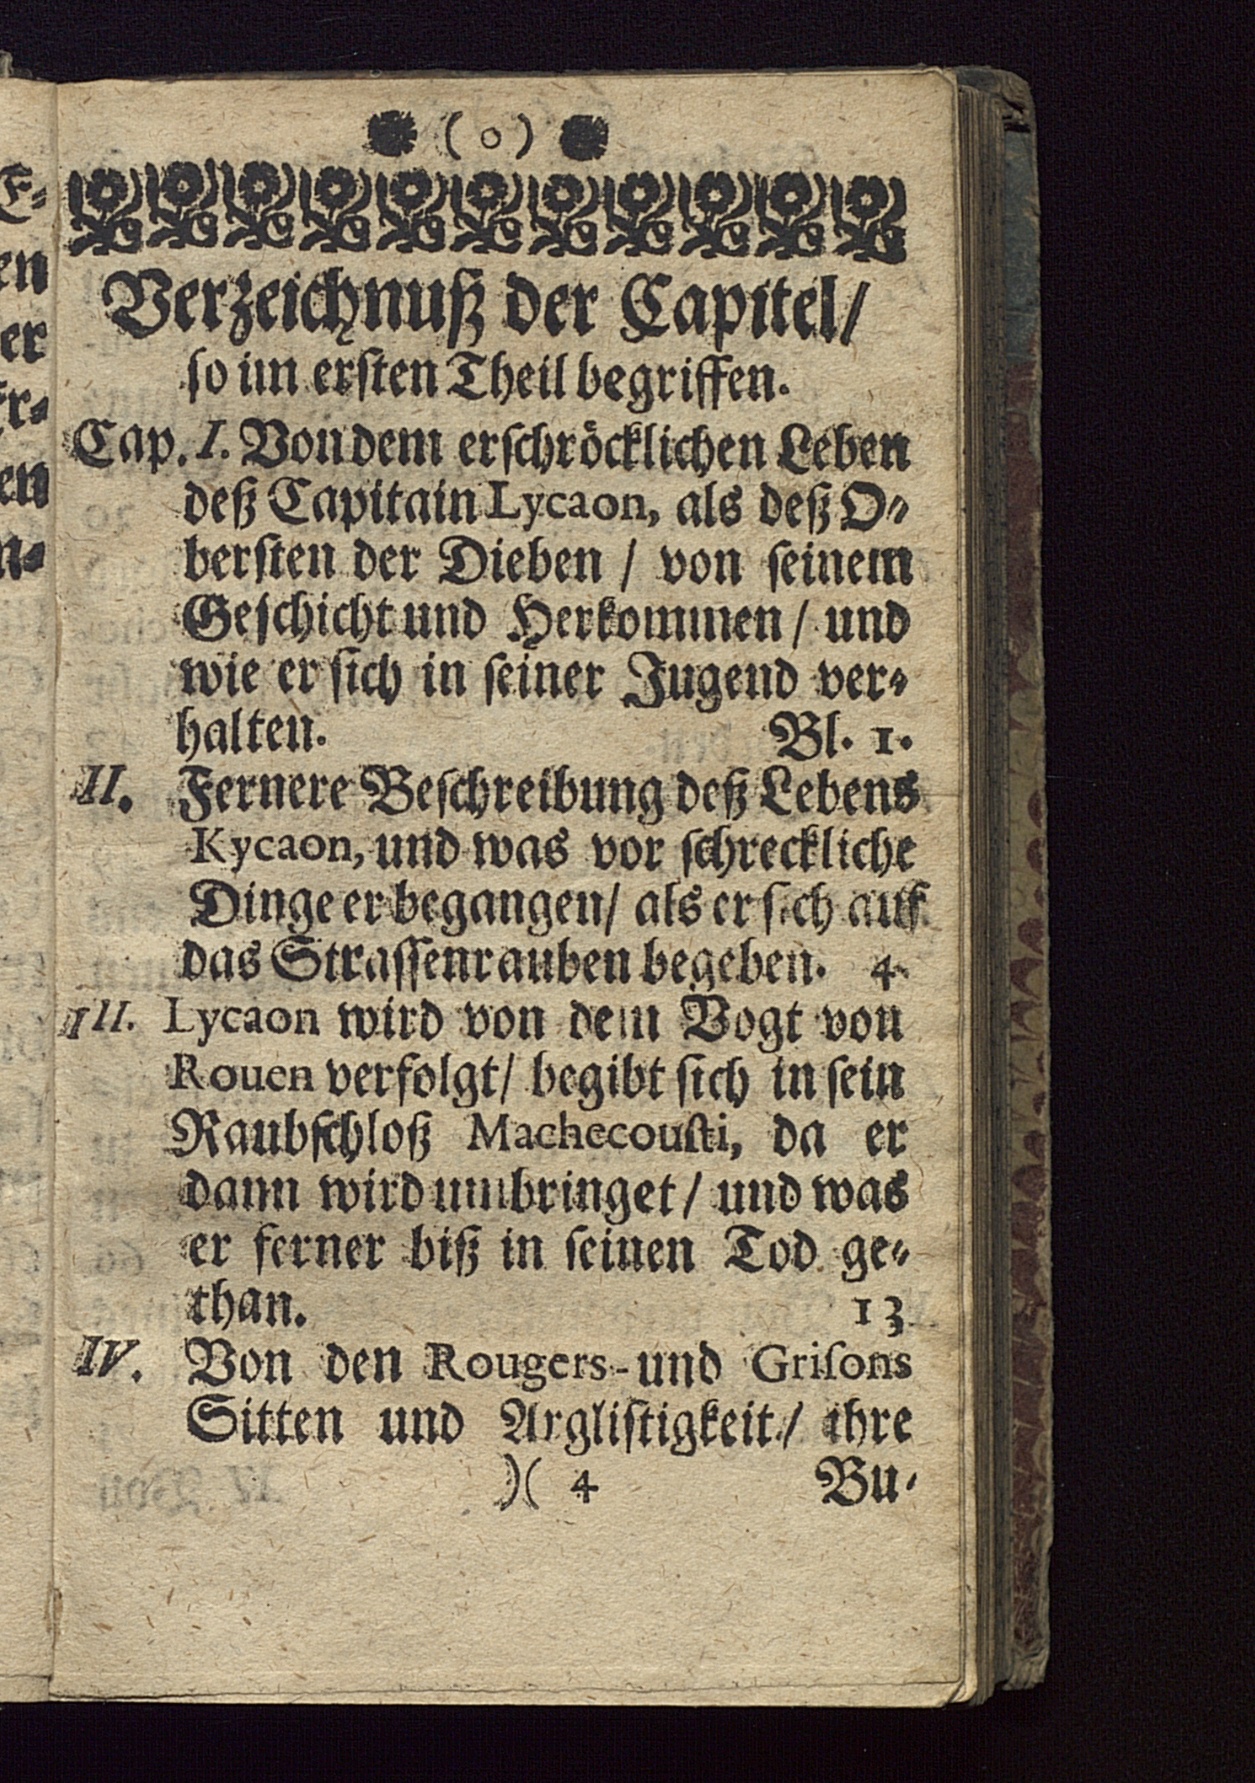 ( o )
Verzeichnuß der Capitel/
so im ersten Theil begriffen.
Cap. I. Von dem erschröcklichen Leben
deß Capitain Lycaon, als deß O-
bersten der Dieben / von seinem
Geschicht und Herkommen / und
wie er sich in seiner Jugend ver-
halten. Bl. 1.
II. Fernere Beschreibung deß Lebens
Kycaon, und was vor schreckliche
Dinge er begangen/ als er sich auf
das Strassenrauben begeben. 4.
III. Lycaon wird von dem Vogt von
Rouen verfolgt/ begibt sich in sein
Raubschloß Machecousti, da er
dann wird umbringet/ und was
er ferner biß in seinen Tod ge-
than. 13
IV. Von den Rougers- und Grisons
Sitten und Arglistigkeit / ihre
)( 4 Bu-